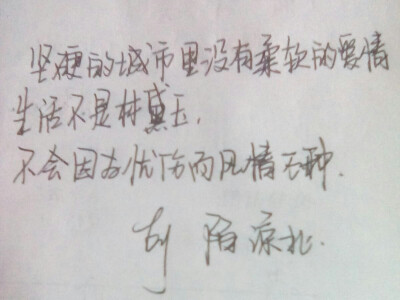 坚硬的城市里没有柔软的爱情
生活不是林黛玉,
不会因为忧伤而风情万种.
陌凉北.